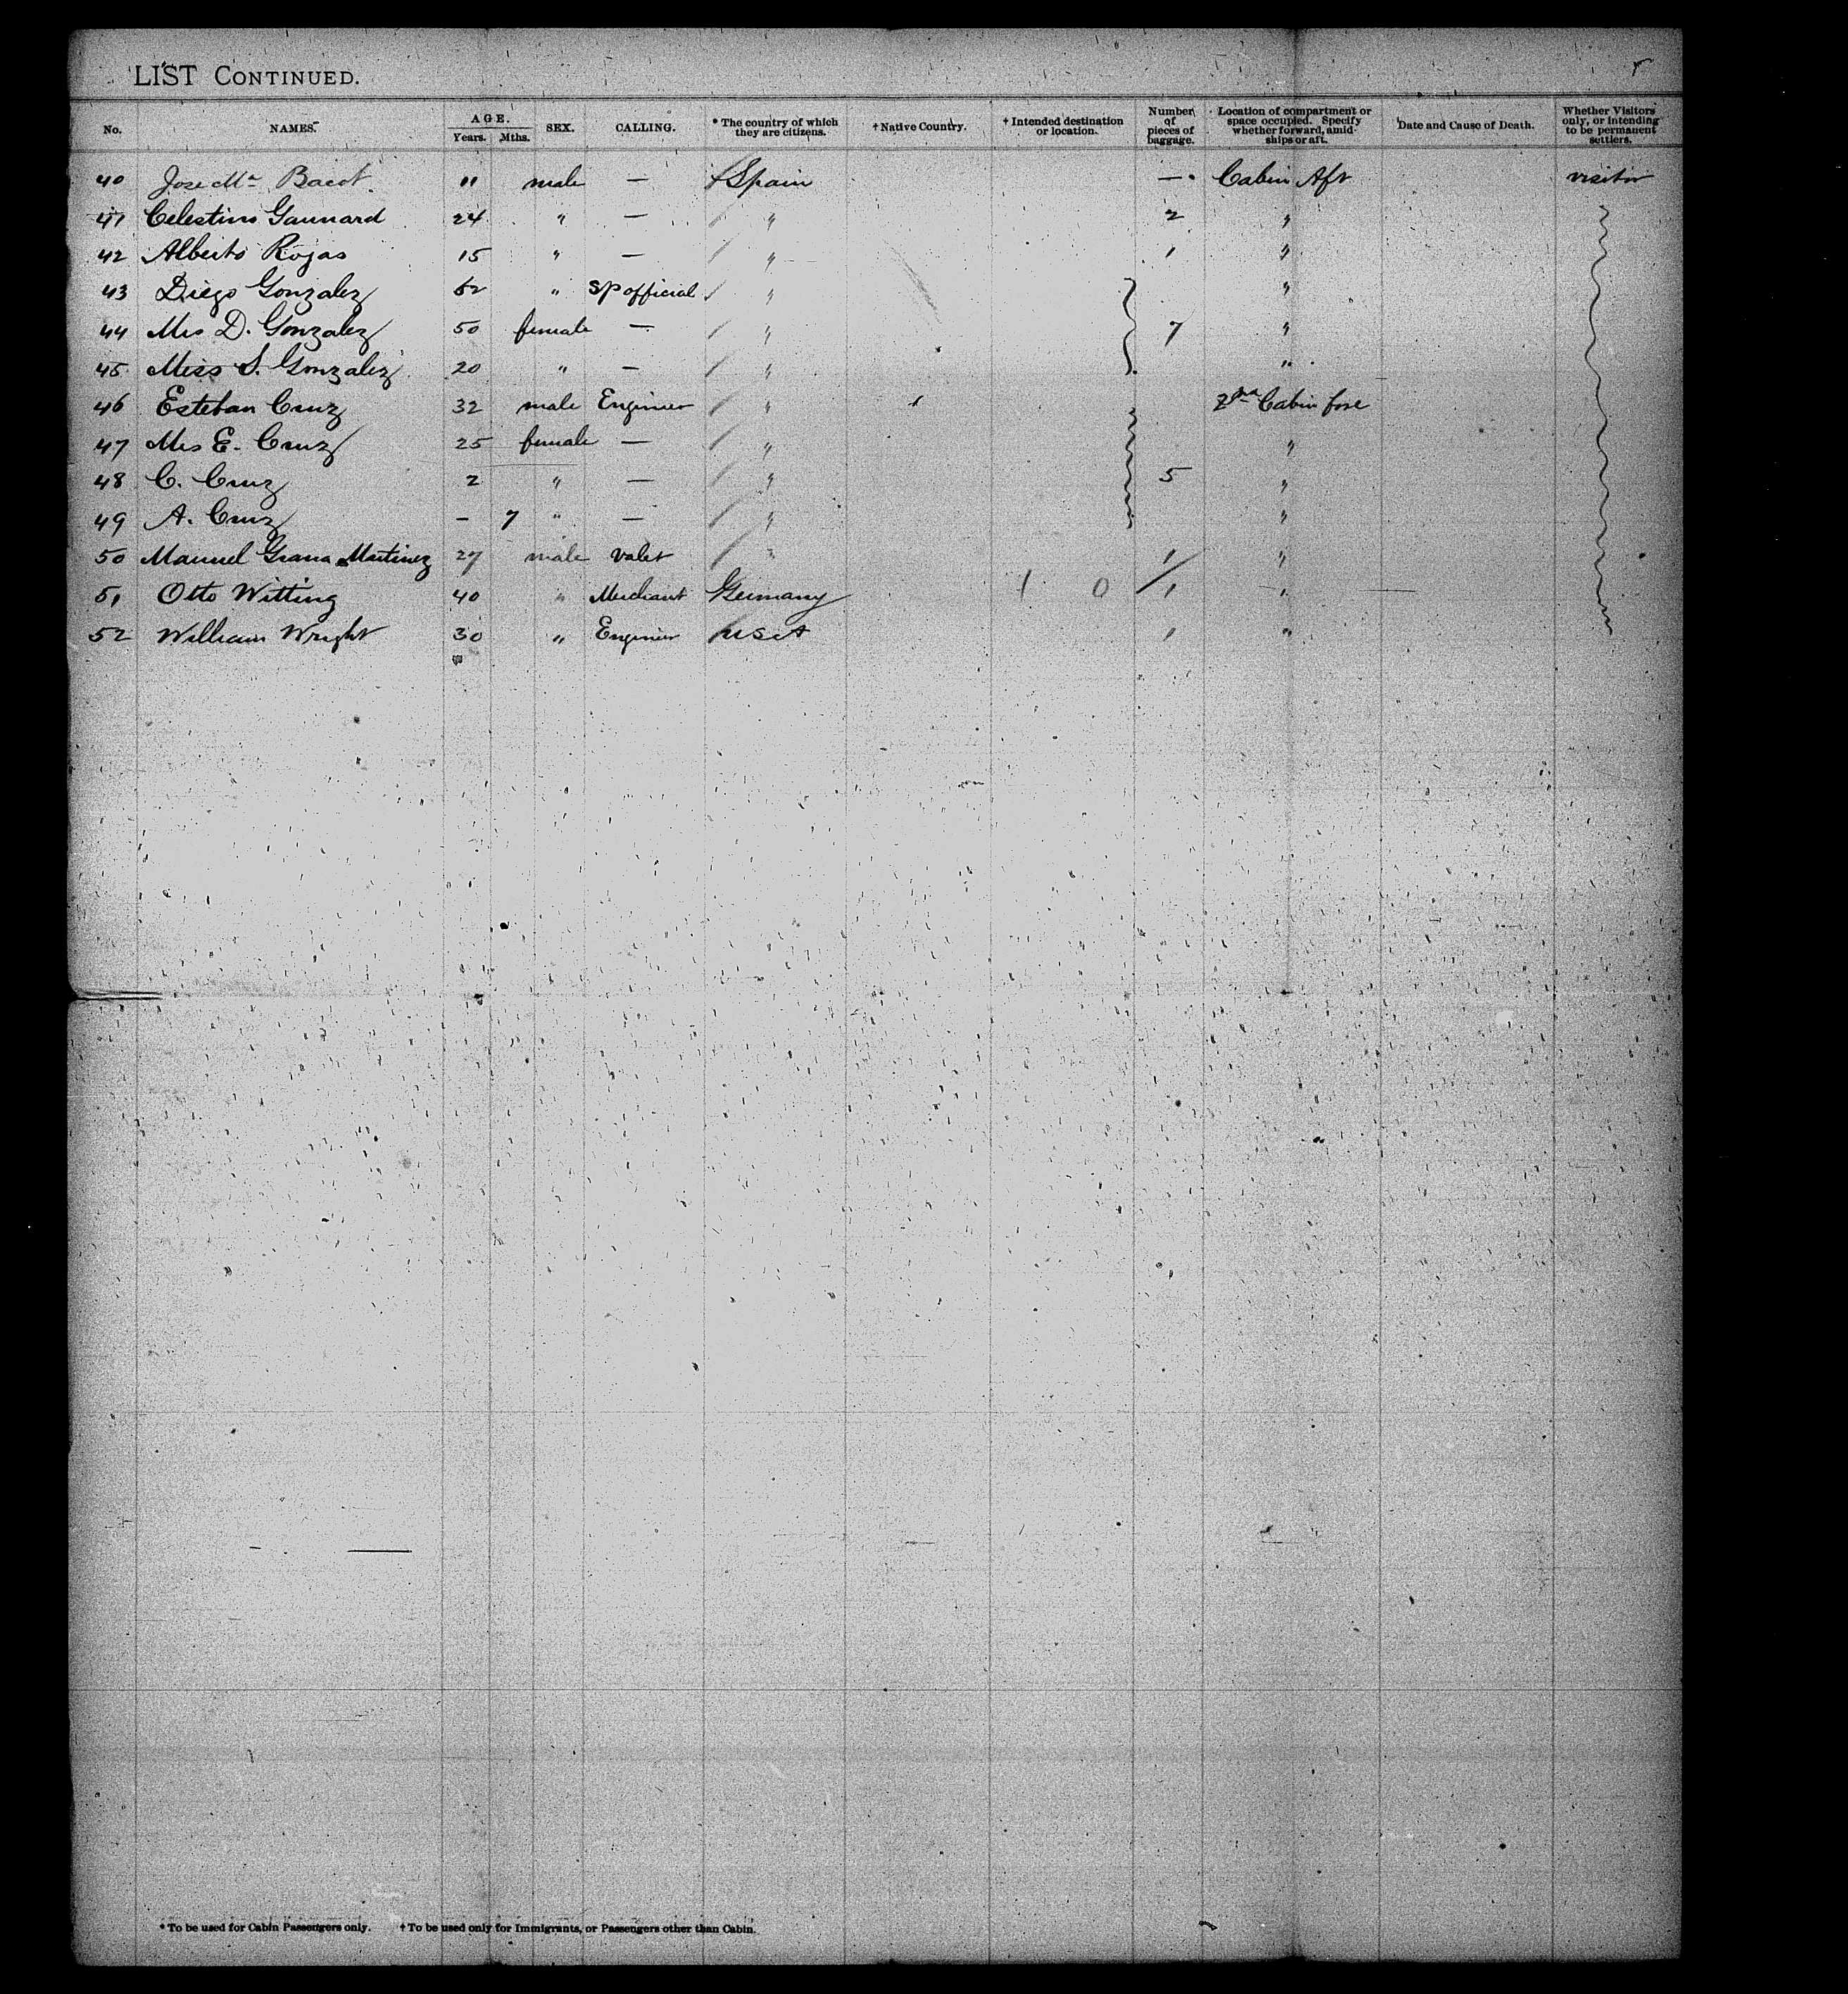 LIST CONTINUED.
No. NAMES. AGE. Years. Mths. SEX. CALLING. * The country of which they are citizens. † Native Country. † Intended destination or location. Number of pieces of baggage. Location of compartment or space occupied. Specify whether forward, amidships or aft. Date and Cause of Death. Whether Visitors only, or intending to be permanent settlers.
40 Jose Ma Bacot. 11 male — Spain — Cabin Aft visitor
41 Celestino Gaunard 24 " — " 2 "
42 Alberto Rojas 15 " — " 1 "
43 Diego Gonzalez 52 " Sp official " "
44 Mrs D. Gonzalez 50 female — " 7 "
45 Miss S. Gonzalez 20 " — " "
46 Esteban Cruz 32 male Engineer " 2nd Cabin fore
47 Mrs E. Cruz 25 female — " "
48 C. Cruz 2 " — " 5 "
49 A. Cruz - 7 " — " "
50 Manuel Grana Martinez 27 male valet " 1 "
51 Otto Witting 40 " Merchant Germany 1 0 1 "
52 William Wright 30 " Engineer USA 1 "
* To be used for Cabin Passengers only. † To be used only for Immigrants, or Passengers other than Cabin.